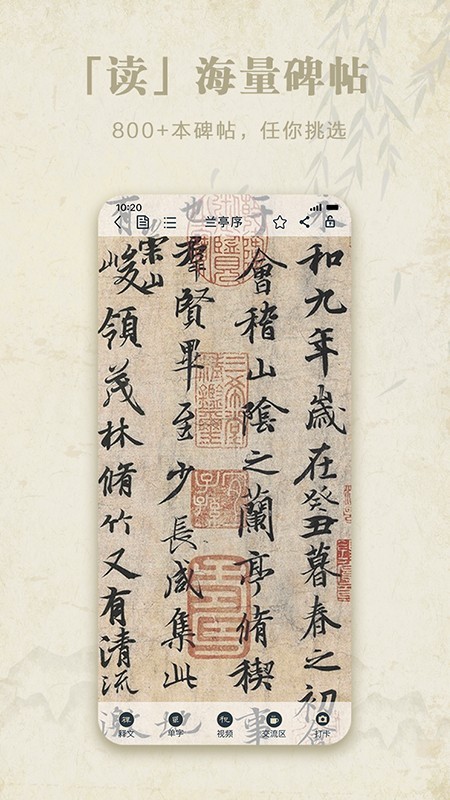 「读」海量碑帖
800+本碑帖，任你挑选
10:20
兰亭序
永和九年歲在癸丑暮春之初會
于會稽山陰之蘭亭脩稧事
也羣賢畢至少長咸集此地
有崇山峻領茂林脩竹又有清流激
释文
单字
视频
交流区
打卡